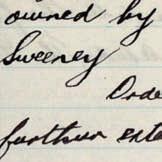 owned by
Sweeney
Orde
further exte